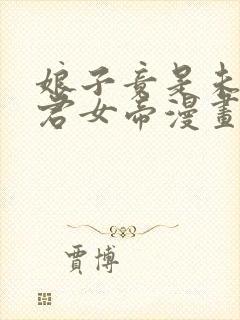 娘子竟是未
君女帝漫畫
賈博